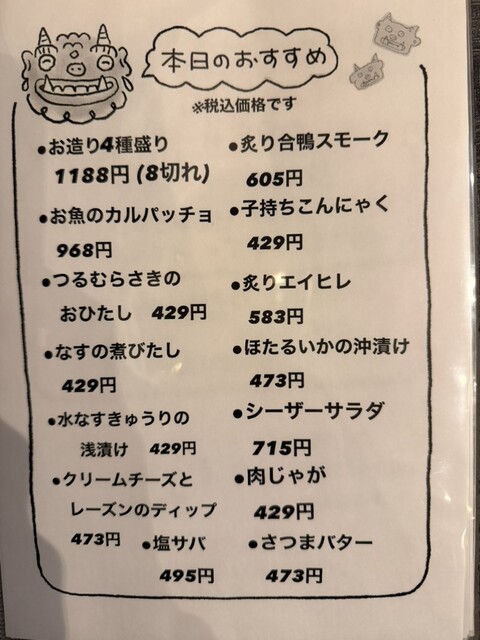 本日のおすすめ
※税込価格です
●お造り4種盛り
1188円 (8切れ)
●お魚のカルパッチョ
968円
●つるむらさきの
おひたし 429円
●なすの煮びたし
429円
●水なすきゅうりの
浅漬け 429円
●クリームチーズと
レーズンのディップ
473円
●塩サバ
495円
●炙り合鴨スモーク
605円
●子持ちこんにゃく
429円
●炙りエイヒレ
583円
●ほたるいかの沖漬け
473円
●シーザーサラダ
715円
●肉じゃが
429円
●さつまバター
473円